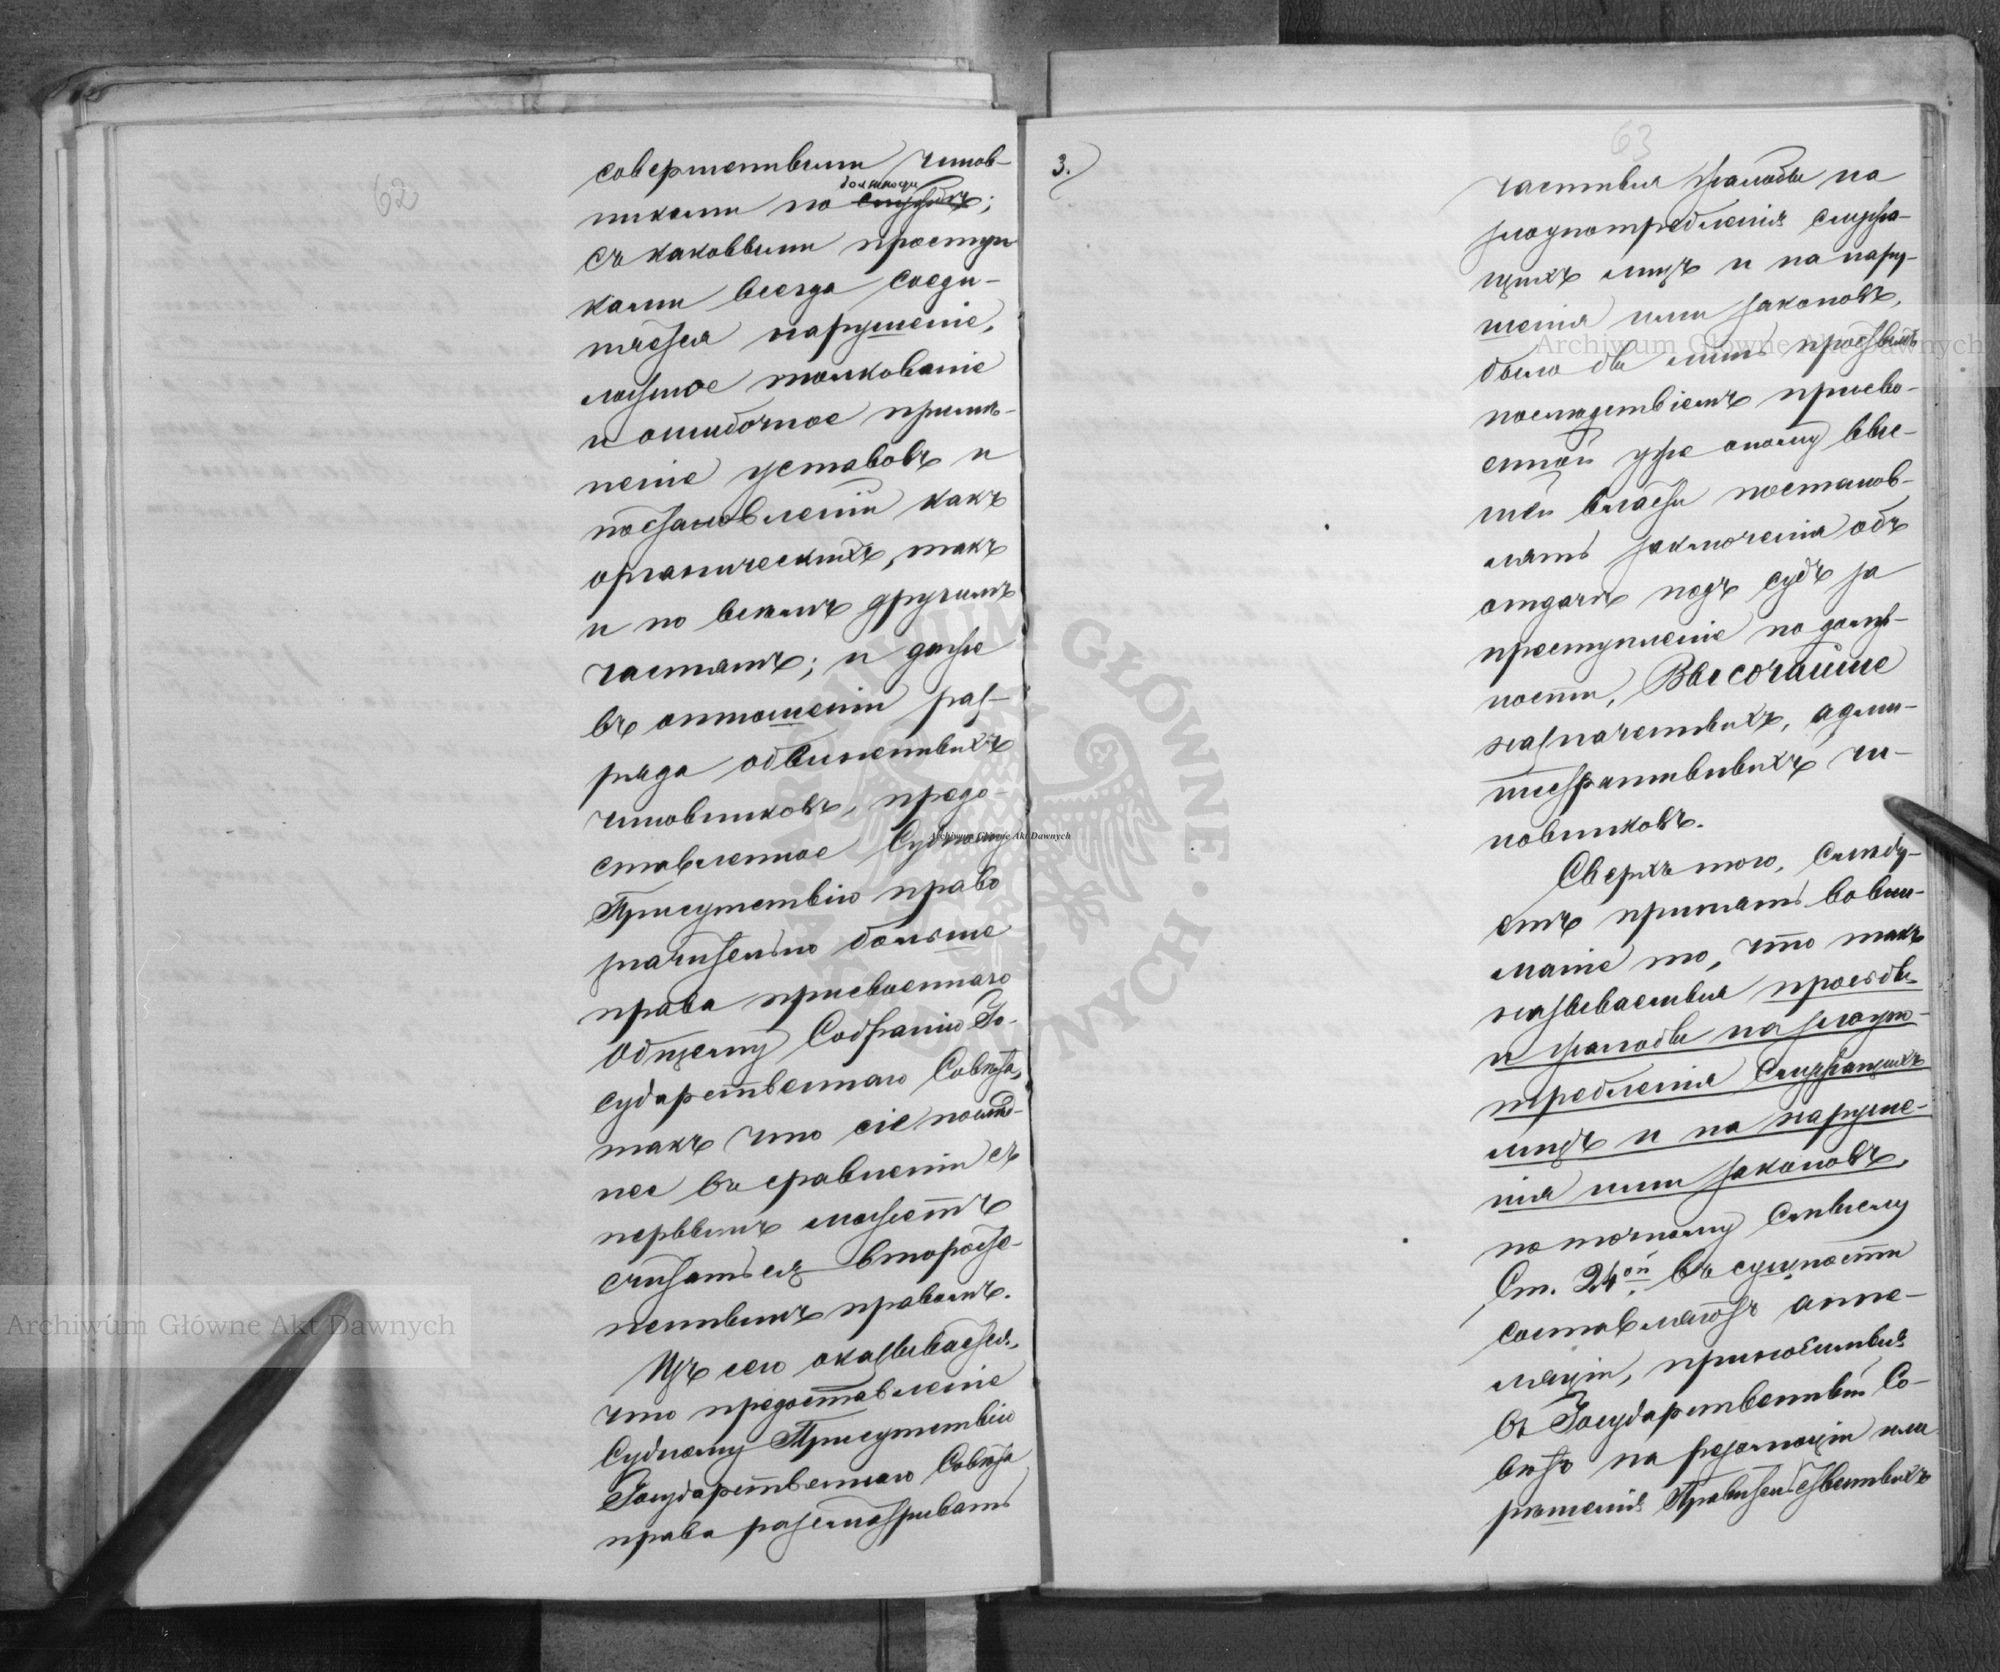 62
совершенными чинов-
никами по должности службѣ;
съ каковыми проступ
ками всегда соеди-
няется нарушеніе,
ложное толкованіе
и ошибочное примѣ-
неніе уставовъ и
постановленій какъ
органическихъ, такъ
и по всѣмъ другимъ
частямъ; и даже
въ отношеніи раз-
ряда обвиненныхъ
чиновниковъ, предо-
ставленное Судному
Присутствію право
значительно больше
права присвоеннаго
Общему Собранію Го-
сударственнаго Совѣта,
такъ что сіе послѣд-
нее въ сравненіи съ
первымъ можетъ
считаться второсте-
пеннымъ правомъ.
Изъ сего оказывается,
что предоставленіе
Судному Присутствію
Государственнаго Совѣта
права разсматривать
63
3.
частныя жалобы на
злоупотребленія служа-
щихъ лицъ и на нару-
шенія ими законовъ,
было бы лишь простымъ
послѣдствіемъ присво-
енной уже оному выс-
шей власти постанов-
лять заключенія объ
отдачѣ подъ судъ за
преступленіе по долж-
ности, Высочайше
назначенныхъ, адми-
нистративныхъ чи-
новниковъ.
Сверхъ того, слѣду-
етъ принять во вни-
маніе то, что такъ
называемыя просьбы
и жалобы на злоупо-
требленія служащихъ
лицъ и на наруше-
нія ими законовъ,
по точному смыслу
Ст. 24ой въ сущности
составляютъ аппе-
ляціи, приносимыя
въ Государственный Со-
вѣтъ на резолюціи или
рѣшенія Правительственныхъ
Archiwum Główne Akt Dawnych
Archiwum Główne Akt Dawnych
Archiwum Główne Akt Dawnych
ARCHIWUM GŁÓWNE AKT DAWNYCH